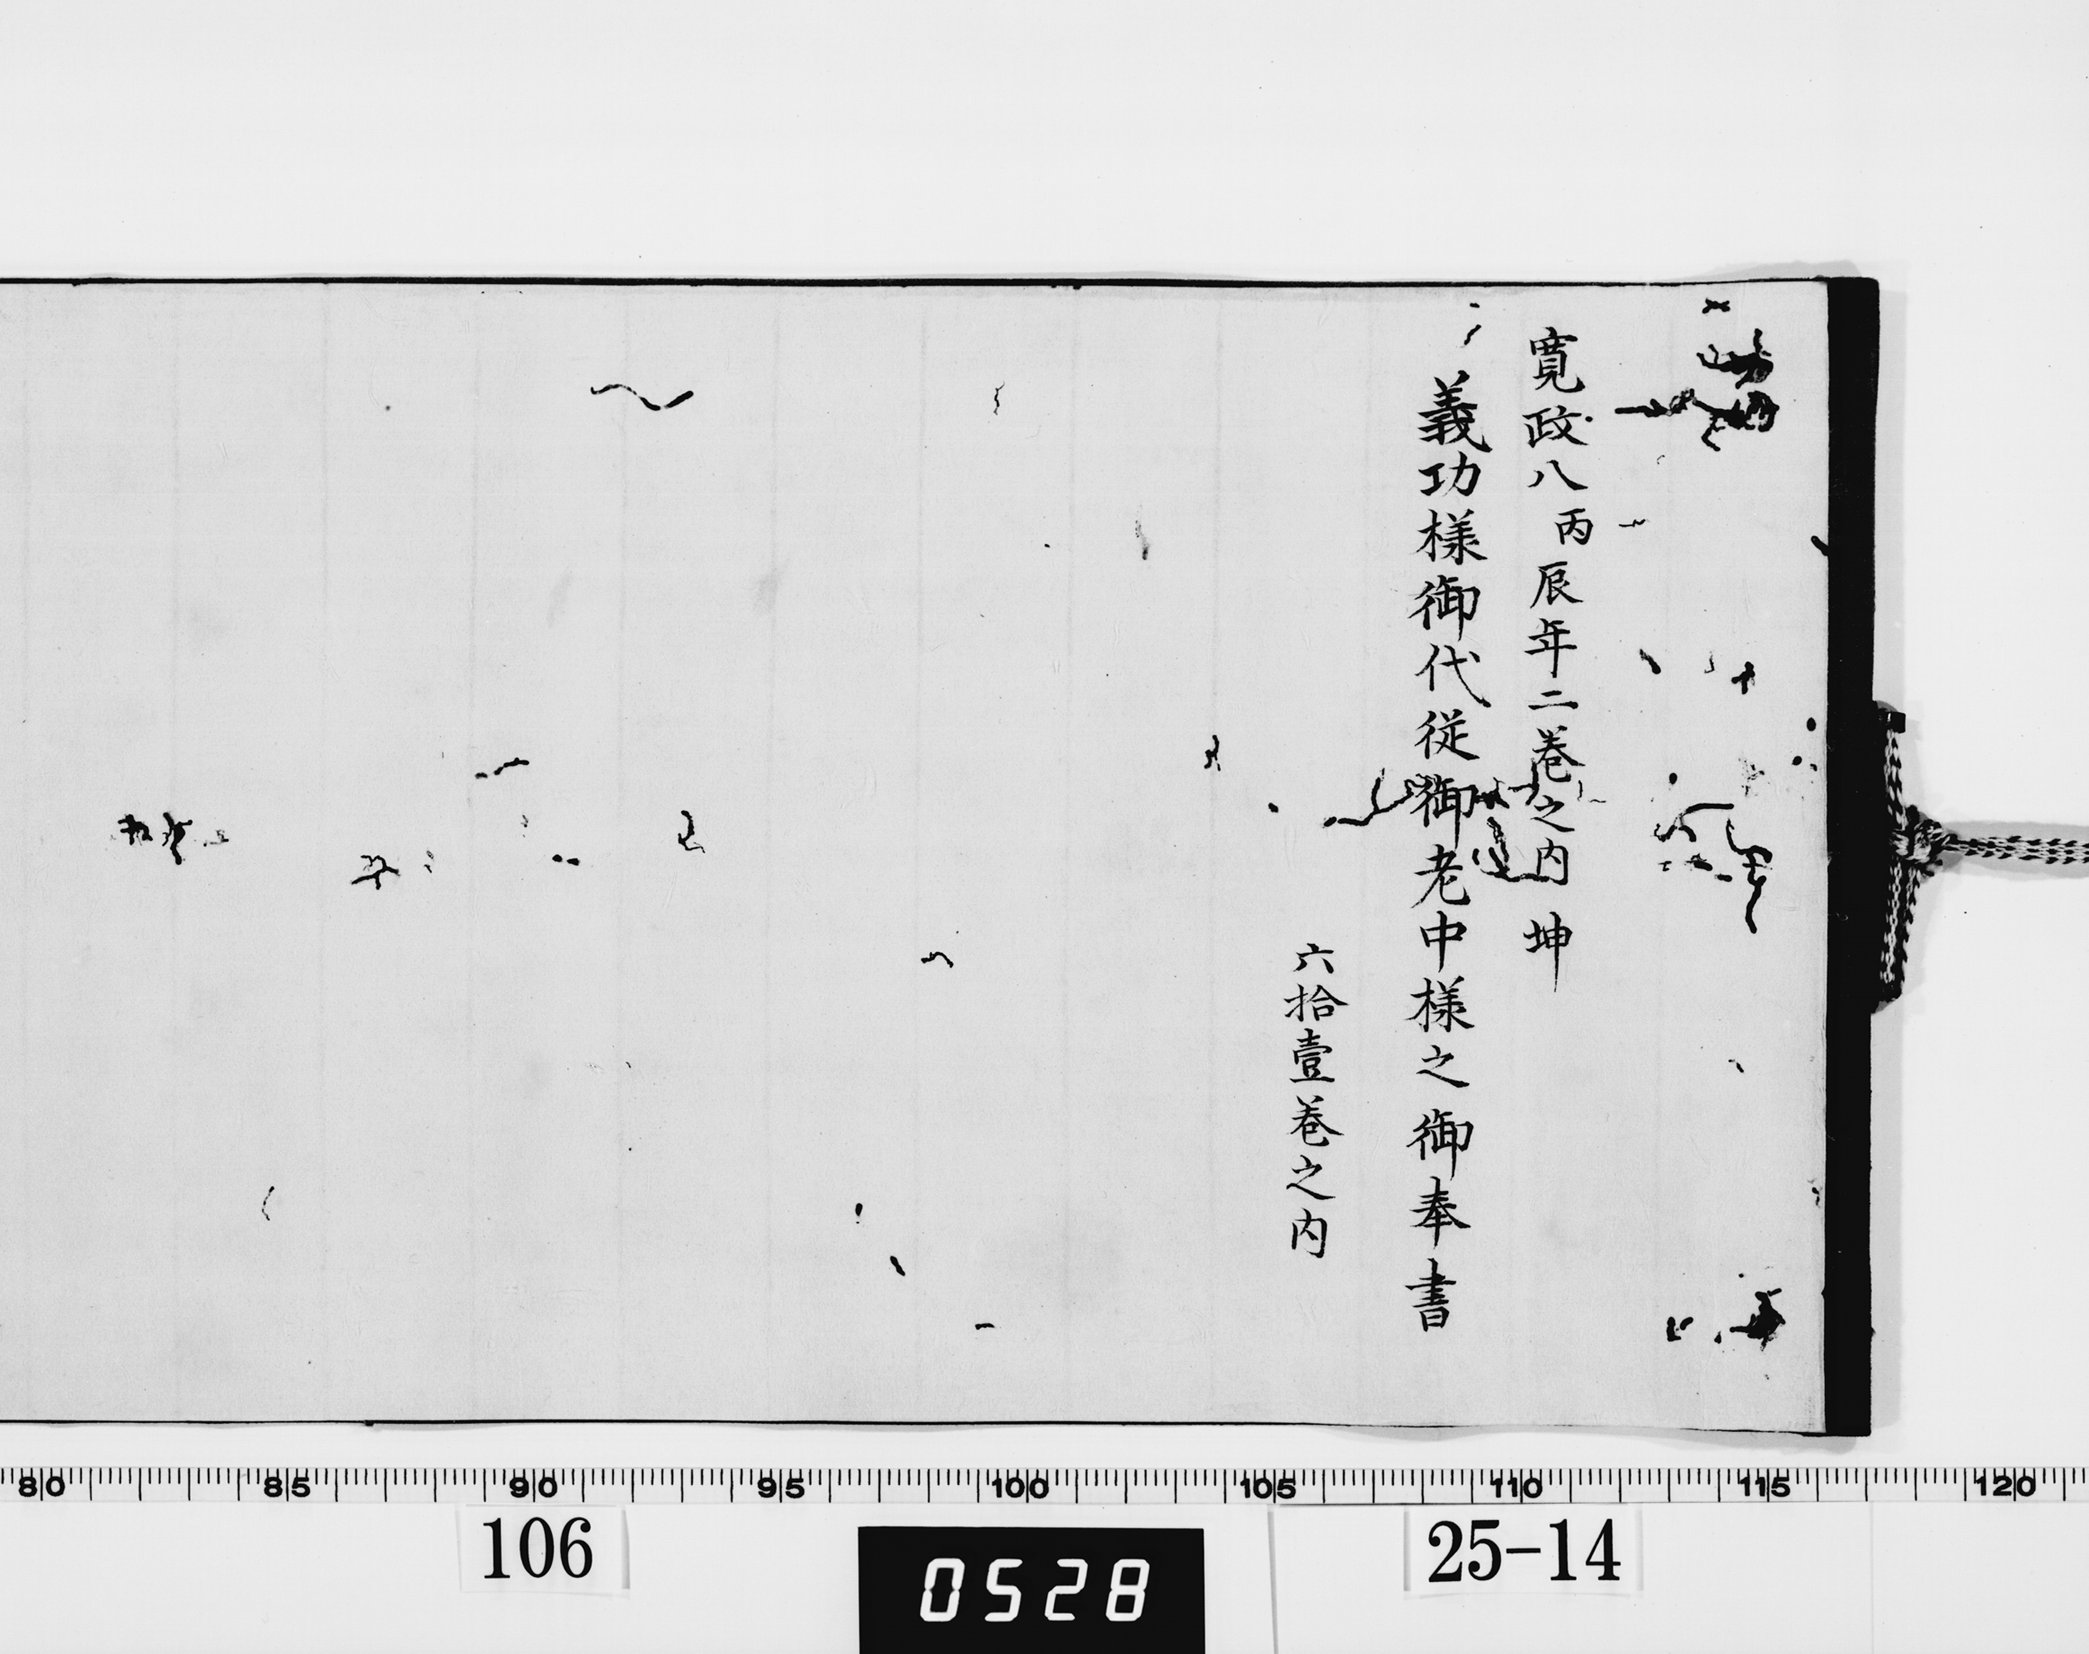 寛政八丙辰年二巻之内 坤
義功様御代従御老中様之御奉書
六拾壹巻之内
80 85 90 95 100 105 110 115 120
106
0528
25-14